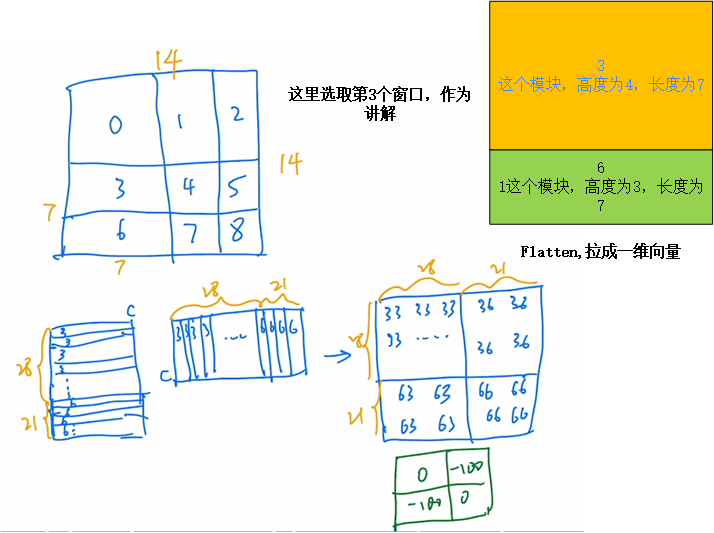 14
0 1 2
3 4 5
6 7 8
14
7
7
这里选取第3个窗口，作为
讲解
3
这个模块，高度为4，长度为7
6
1这个模块，高度为3，长度为
7
Flatten,拉成一维向量
C
28
21
3
3
3
3
6
6
6
28 21
3 3 3 3 ... 6 6 6 6
C
28 21
28
21
33 33 33 36 36
33 .... 36 36
63 63 66 66
63 63 66 66
0 -100
-100 0